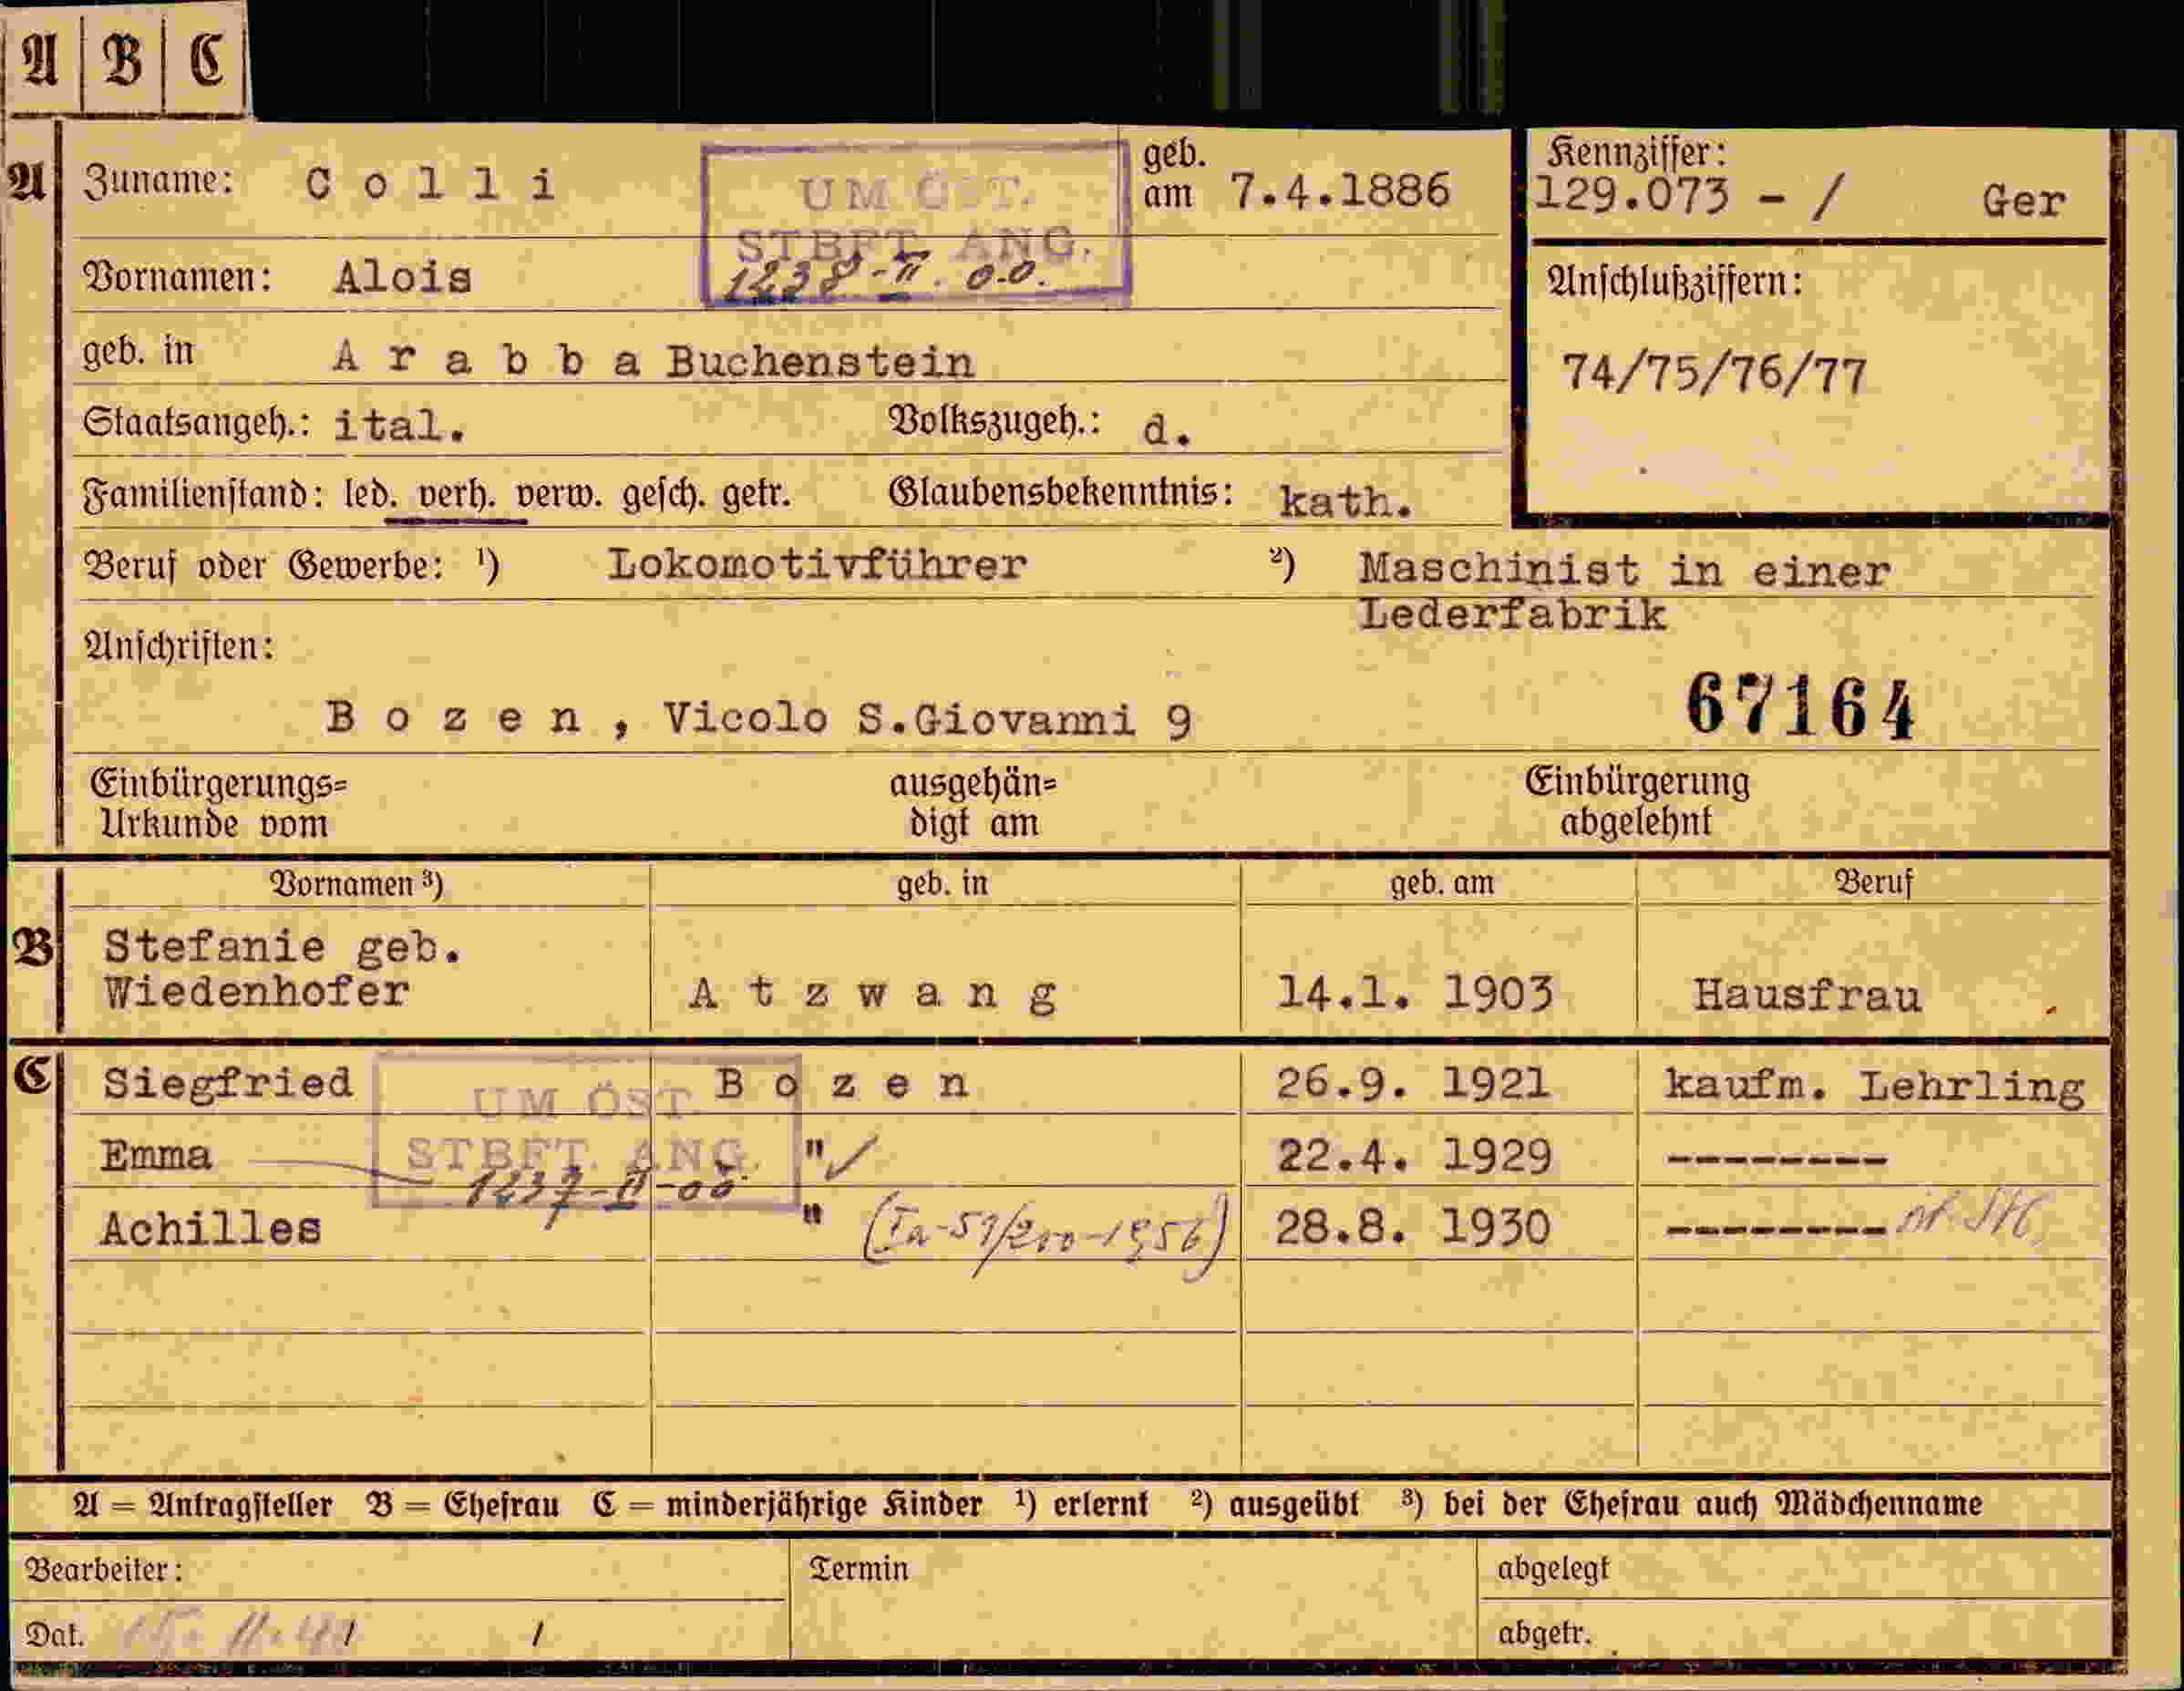 A B C
A Zuname: Colli
UM ÖST.
STBFT. ANG.
1238-II. 0.0.
geb. am 7.4.1886
Kennziffer:
129.073 - / Ger
Vornamen: Alois
Anschlußziffern:
74/75/76/77
geb. in Arabba Buchenstein
Staatsangeh.: ital. Volkszugeh.: d.
Familienstand: led. verh. verw. gesch. getr. Glaubensbekenntnis: kath.
Beruf oder Gewerbe: ¹) Lokomotivführer ²) Maschinist in einer
Lederfabrik
Anschriften:
67164
Bozen, Vicolo S.Giovanni 9
Einbürgerungs= ausgehän= Einbürgerung
Urkunde vom digt am abgelehnt
Vornamen ³) geb. in geb. am Beruf
B Stefanie geb.
Wiedenhofer Atzwang 14.1. 1903 Hausfrau
C Siegfried Bozen 26.9. 1921 kaufm. Lehrling
UM ÖST
STBFT. ANG.
1237-II-00
Emma " ✓ 22.4. 1929 --------
Achilles " (Ia-51/200-1956) 28.8. 1930 --------
A = Antragsteller B = Ehefrau C = minderjährige Kinder ¹) erlernt ²) ausgeübt ³) bei der Ehefrau auch Mädchenname
Bearbeiter: Termin abgelegt
Dat. abgetr.